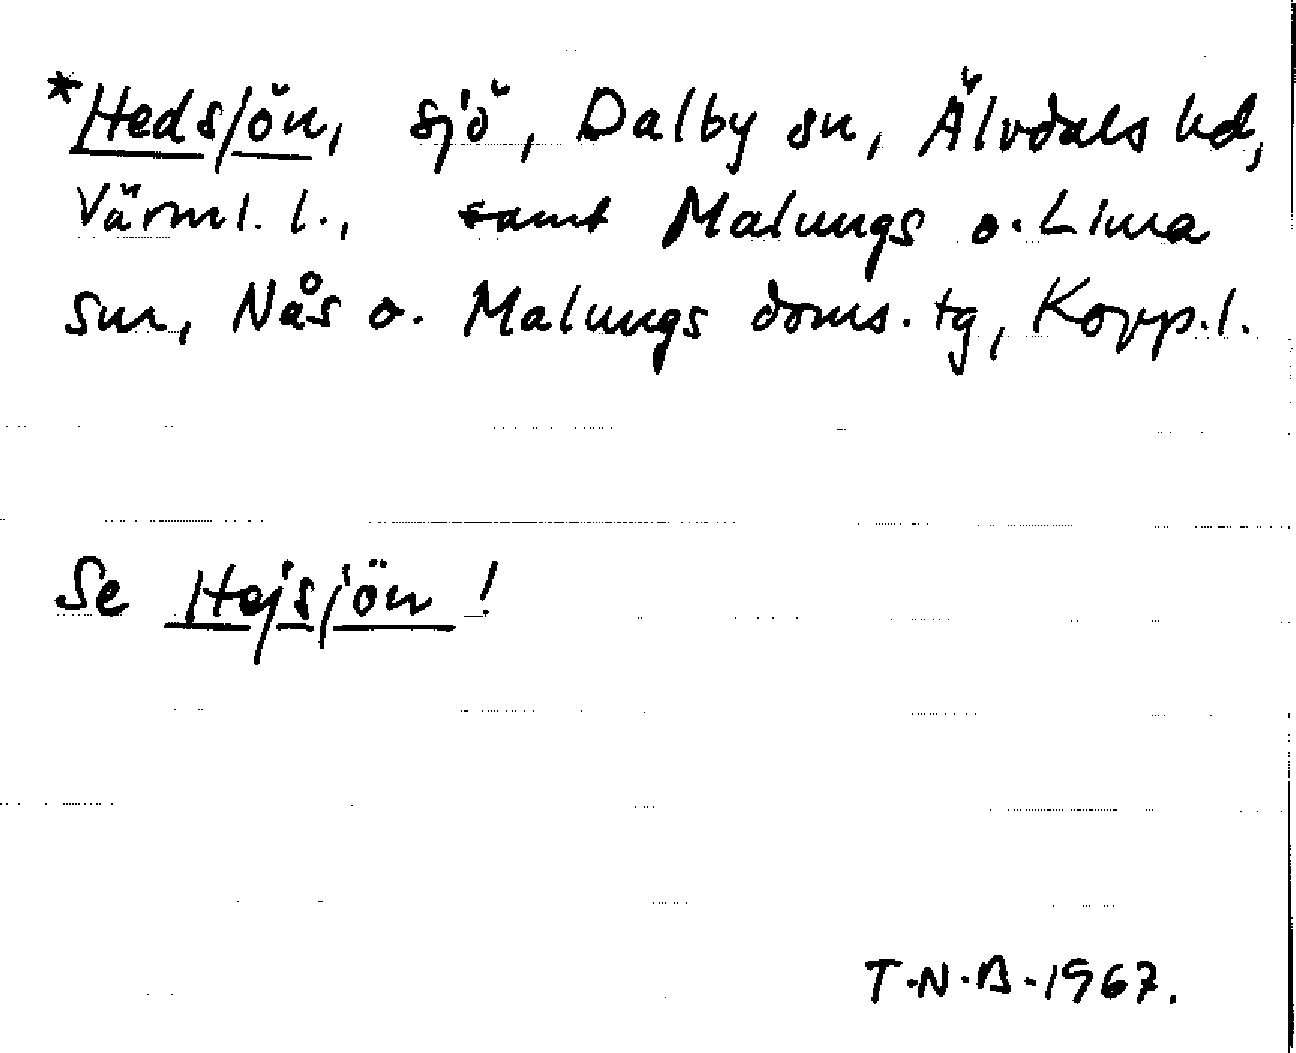 *Hedsjön, sjö, Dalby sn, Älvdals hd,
Värml. l., samt Malungs o. Lima
snr, Nås o. Malungs doms. tg, Kopp. l.
Se Hejsjön!
T.N.B. 1967.